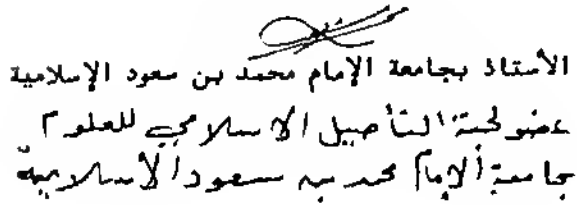 الأستاذ بجامعة الإمام محمد بن سعود الإسلامية
عضو لجنة التأصيل الاسلامي للعلوم
جامعة الإمام محمد بن سعود الأسلامية